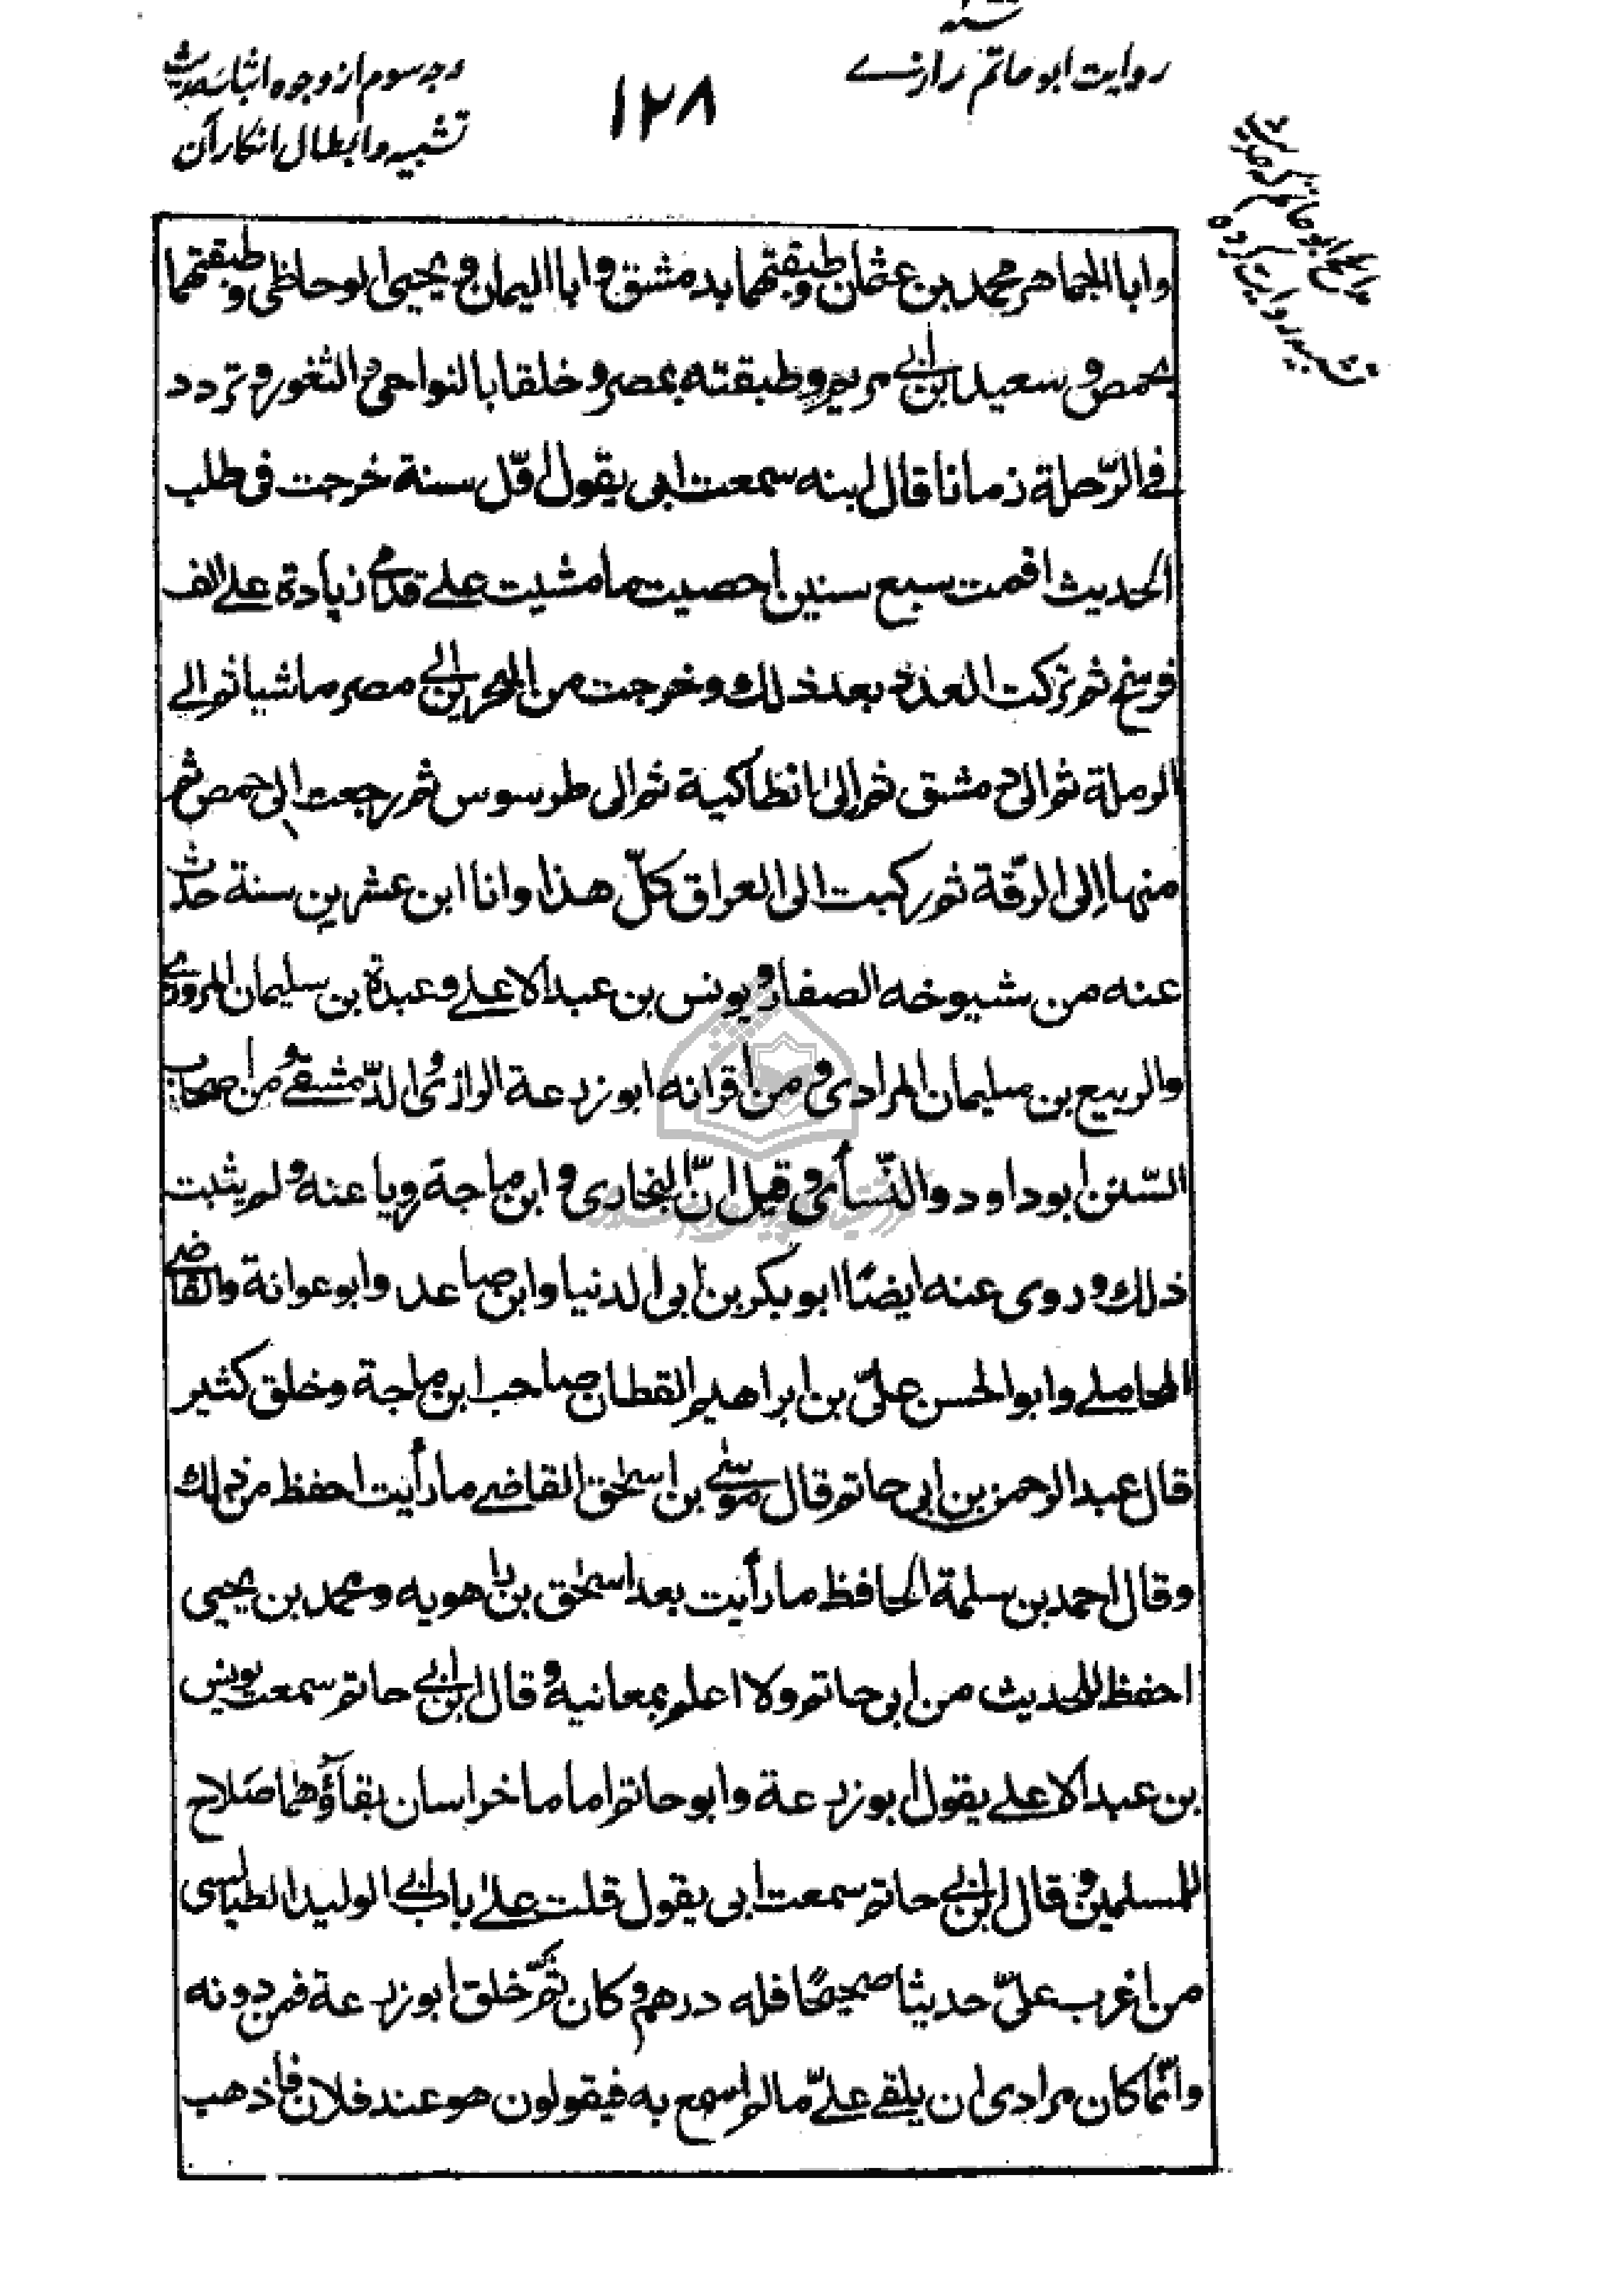 روایت ابو حاتم رازے
۱۲۸
وجه سوم از وجوه اثبات حدیث
تشبیه و ابطال انکار آن
مدایح ابو حاتم که حدیث
تشبیه روایت کرده
وابا الجماهر محمد بن عثمان وطبقتهما بدمشق وابا الیمان ویحیی الوحاظی وطبقتهما
بحمص وسعید ابن أبی مریم وطبقته بمصر وخلقا بالنواحی والثغور وتردد
فی الرّحلة زمانا قال ابنه سمعت ابی یقول اوّل سنة خرجت فی طلب
الحدیث اقمت سبع سنین احصیت ما مشیت علی قدمی زیادة علی الف
فرسخ ثم ترکت العدد بعد ذلك وخرجت من البحرین الی مصر ماشیا ثم الی
الرملة ثم الی دمشق ثم إلی انطاکیة ثم الی طرسوس ثم رجعت الی حمص ثم
منها إلی الرقّة ثم رکبت الی العراق کلّ هذا وانا ابن عشرین سنة حدّث
عنه من شیوخه الصفار ویونس بن عبد الاعلی وعبدة بن سلیمان المروزی
والربیع بن سلیمان المرادی ومن أقرانه ابو زرعة الرازی والدّمشقی ومن اصحاب
السّنن ابو داود والنّسأی وقیل انّ البخاری وابن ماجة رویا عنه ولم یثبت
ذلك وروی عنه ایضًا ابو بکر بن ابی الدنیا وابن صاعد وابو عوانة والقاضی
المحاملی وابو الحسن علیّ بن ابراهیم القطان صاحب ابن ماجة وخلق کثیر
قال عبد الرحمن بن ابی حاتم قال موسی بن اسحٰق القاضی ما رأیت احفظ من ابیك
وقال احمد بن سلمة الحافظ ما رأیت بعد اسحٰق بن راهویه ومحمد بن یحیی
احفظ للحدیث من ابی حاتم ولا اعلم بمعانیه وقال ابن أبی حاتم سمعت یونس
بن عبد الاعلی یقول ابو زرعة وابو حاتم اماما خراسان بقاؤهما صلاح
للمسلمین وقال ابن أبی حاتم سمعت ابی یقول قلت علی باب أبی الولید الطیالسی
من اغرب علیّ حدیثا صحیحًا فله درهم وکان ثَمَّ خلق ابو زرعة فمن دونه
وانّما کان مرادی ان یلقی علیّ ما لم اسمع به فیقولون هو عند فلان فاذهب